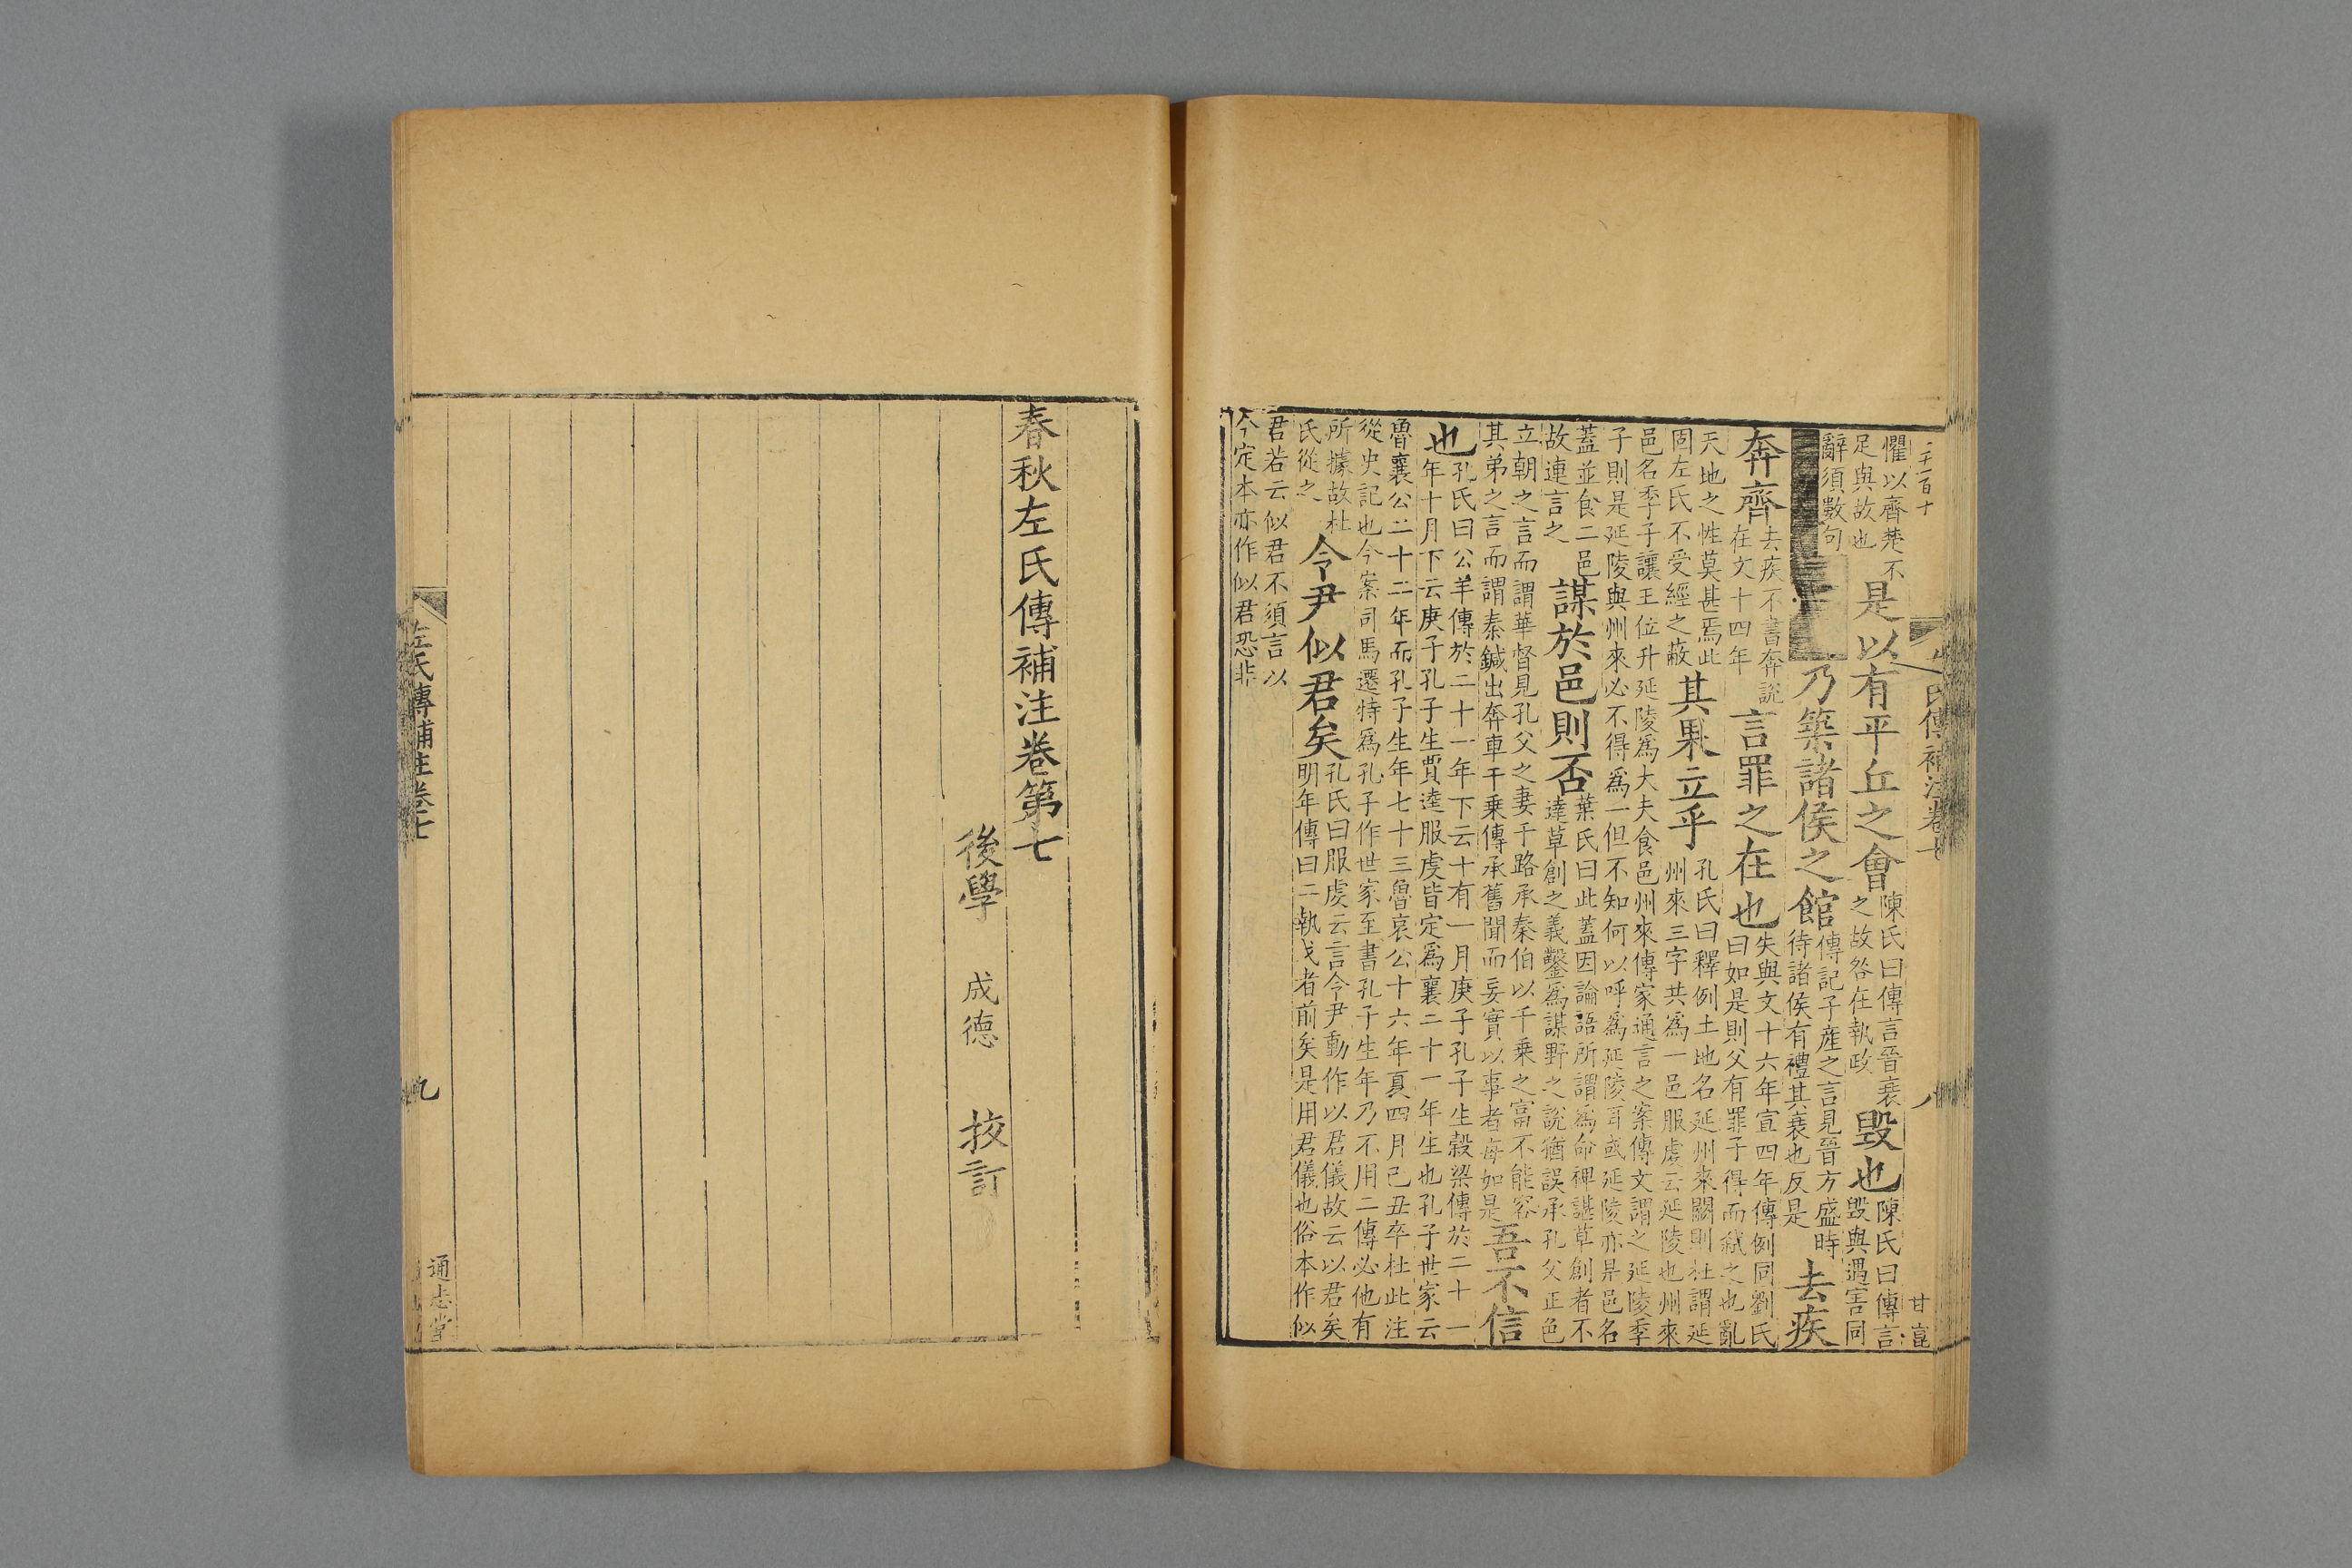 氏傳補注卷七 八 甘崑
懼以齊楚不
足與故也
是以有平丘之會
陳氏曰傳言晉衰
之故咎在執政
毁也
陳氏曰傳言
毁與遇害同
辭須數句
乃築諸侯之館
傳記子産之言見晉方盛時
待諸侯有禮其衰也反是
去疾
奔齊
去疾不書奔説
在文十四年
言罪之在也
失與文十六年宣四年傳例同劉氏
曰如是則父有罪子得而弑之也亂
天地之性莫甚焉此
固左氏不受經之蔽
其果立乎
孔氏曰釋例土地名延州來闕則杜謂延
州來三字共爲一邑服虔云延陵也州來
邑名季子讓王位升延陵爲大夫食邑州來傳家通言之案傳文謂之延陵季
子則是延陵與州來必不得爲一但不知何以呼爲延陵耳或延陵亦是邑名
蓋並食二邑
故連言之
謀於邑則否
葉氏曰此蓋因論語所謂爲命裨諶草創者不
達草創之義鑿爲謀野之說猶誤承孔父正色
立朝之言而謂華督見孔父之妻于路承秦伯以千乘之富不能容
其弟之言而謂秦鍼出奔車千乘傳承舊聞而妄實以事者每如是
吾不信
也
孔氏曰公羊傳於二十一年下云十有一月庚子孔子生榖梁傳於二十一
年十月下云庚子孔子生賈逵服虔皆定爲襄二十一年生也孔子世家云
魯襄公二十二年而孔子生年七十三魯哀公十六年夏四月己丑卒杜此注
從史記也今案司馬遷特爲孔子作世家至書孔子生年乃不用二傳必他有
所據故杜
氏從之
令尹似君矣
孔氏曰服虔云言令尹動作以君儀故云以君矣
明年傳曰二執戈者前矣是用君儀也俗本作似
君若云似君不須言以
今定本亦作似君恐非
春秋左氏傳補注卷第七
後學 成德 挍訂
左氏傳補注卷七 九 通志堂